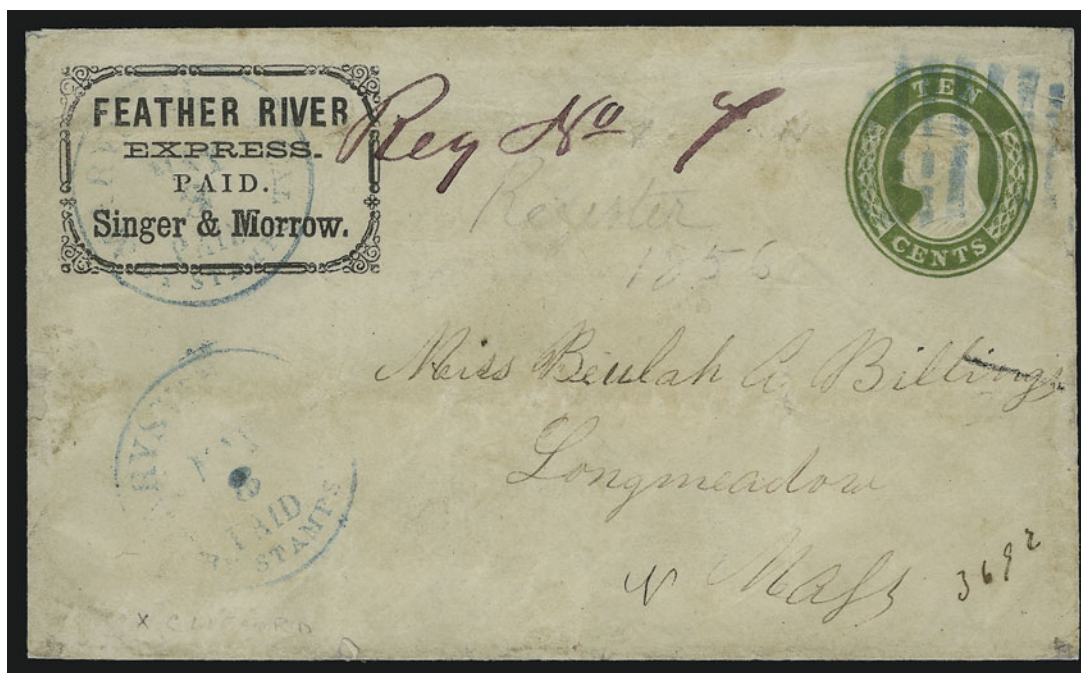 FEATHER RIVER
EXPRESS.
PAID.
Singer & Morrow.
Reg No 7
TEN
CENTS
Register
1856
Miss Beulah A Billings
Longmeadow
Mass
3692
8
PAID
STAMPS
X CLIFFORD